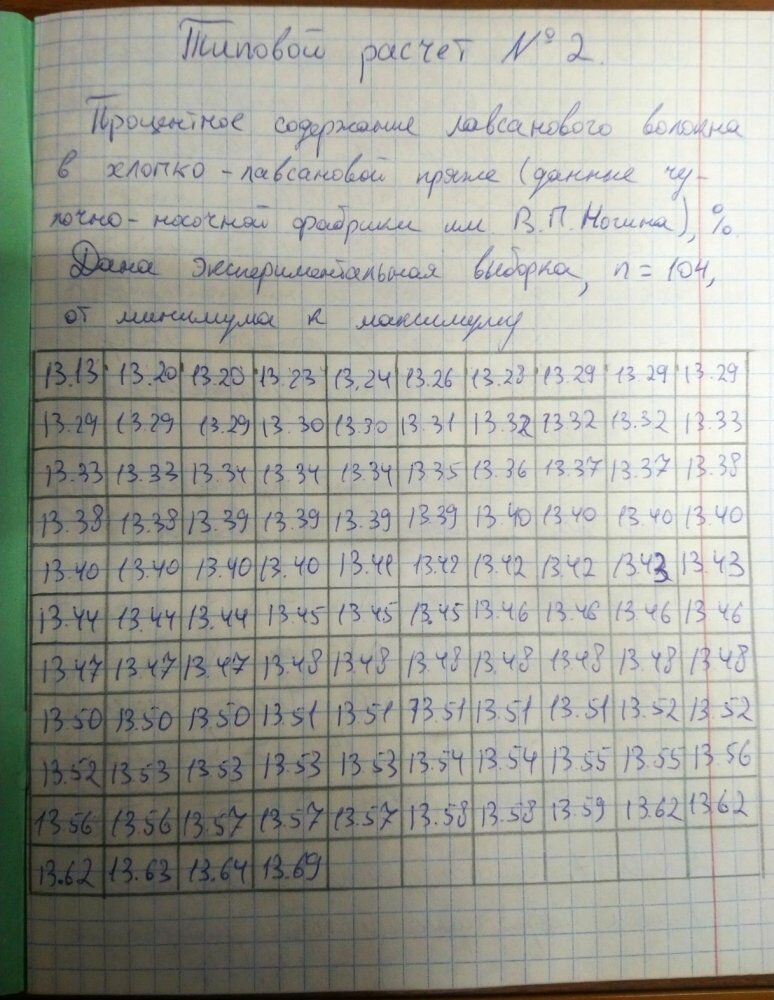 Типовой расчет № 2.
Процентное содержание лавсанового волокна
в хлопко-лавсановой пряже (данные чу-
лочно-носочной фабрики им. В.П.Ногина), %.
Дана экспериментальная выборка, n = 104,
от минимума к максимуму
13.13 13.20 13.20 13.23 13.24 13.26 13.28 13.29 13.29 13.29
13.29 13.29 13.29 13.30 13.30 13.31 13.32 13.32 13.32 13.33
13.33 13.33 13.34 13.34 13.34 13.35 13.36 13.37 13.37 13.38
13.38 13.38 13.39 13.39 13.39 13.39 13.40 13.40 13.40 13.40
13.40 13.40 13.40 13.40 13.41 13.42 13.42 13.42 13.43 13.43
13.44 13.44 13.44 13.45 13.45 13.45 13.46 13.46 13.46 13.46
13.47 13.47 13.47 13.48 13.48 13.48 13.48 13.48 13.48 13.48
13.50 13.50 13.50 13.51 13.51 13.51 13.51 13.51 13.52 13.52
13.52 13.53 13.53 13.53 13.53 13.54 13.54 13.55 13.55 13.56
13.56 13.56 13.57 13.57 13.57 13.58 13.58 13.59 13.62 13.62
13.62 13.63 13.64 13.69